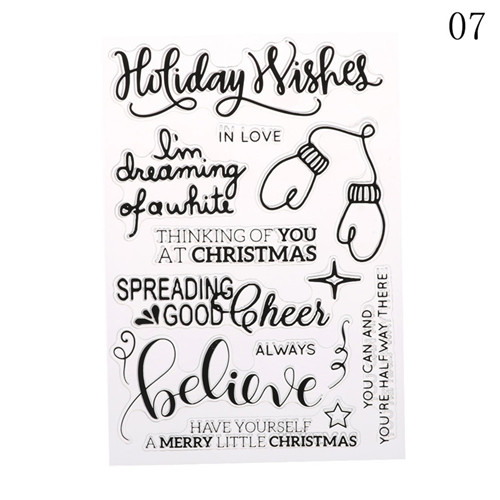 07
Holiday Wishes
IN LOVE
I'm
dreaming
of a white
THINKING OF YOU
AT CHRISTMAS
SPREADING
GOOD Cheer
ALWAYS
believe
YOU CAN AND
YOU'RE HALFWAY THERE!
HAVE YOURSELF
A MERRY LITTLE CHRISTMAS